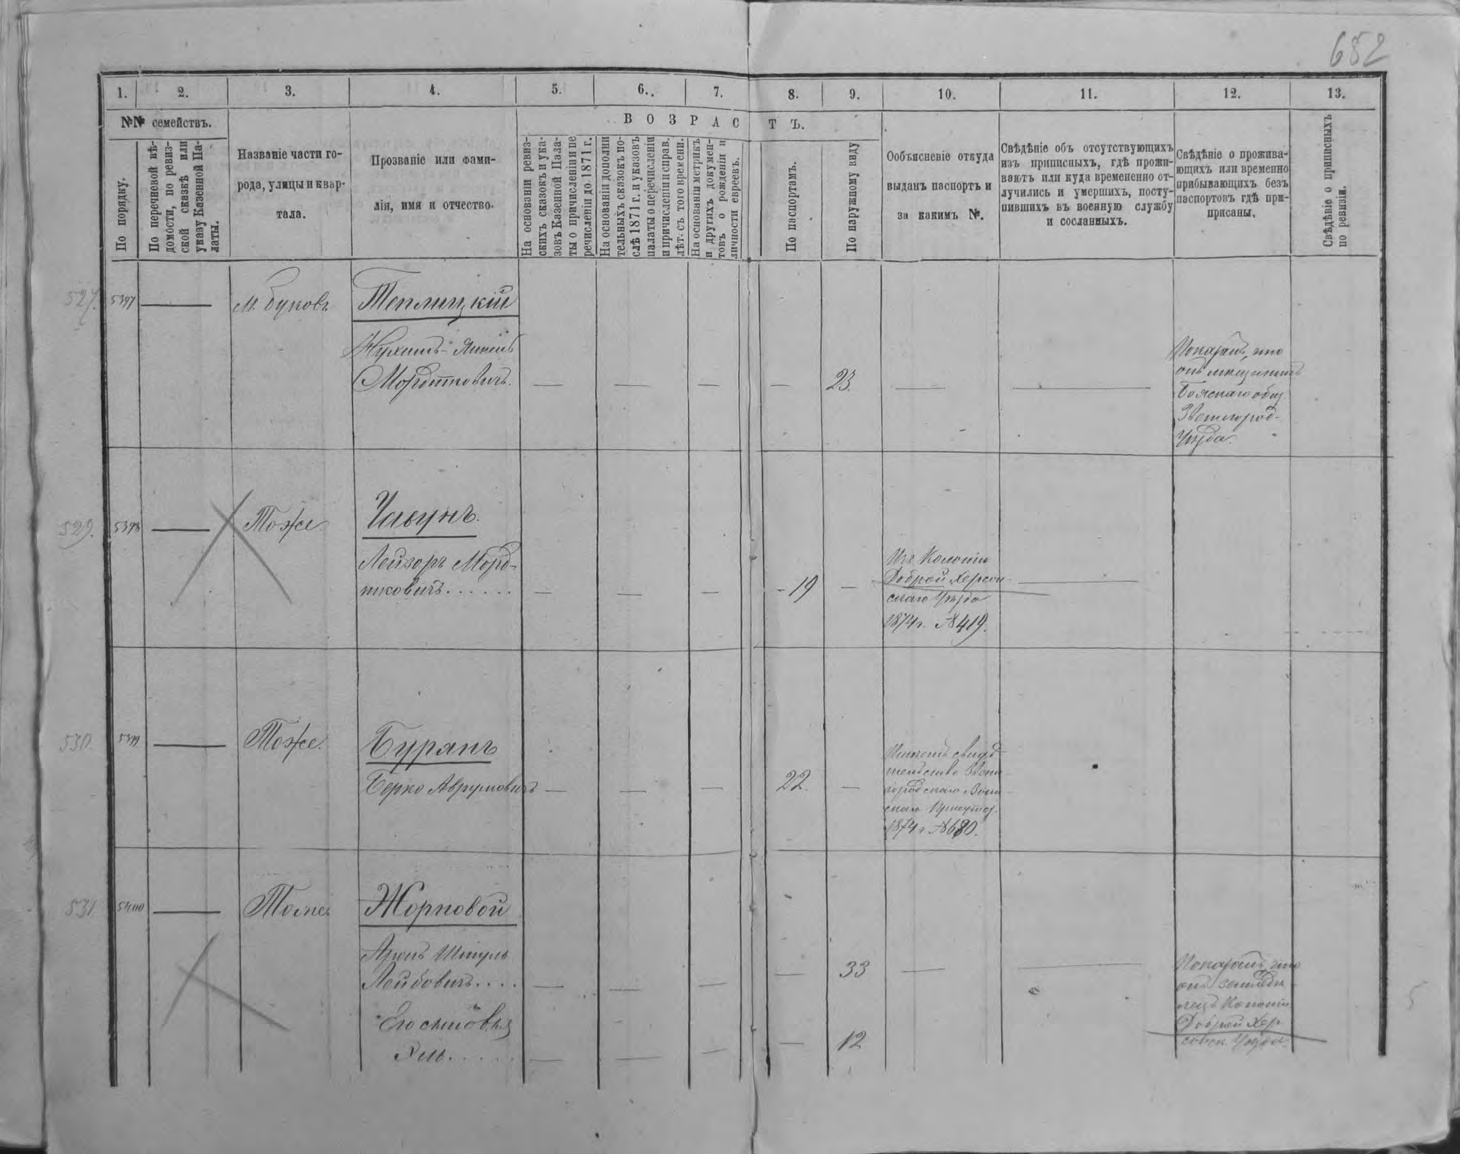 652
1. 2. 3. 4. 5. 6. 7. 8. 9. 10. 11. 12. 13.
№№ семействъ.
По порядку.
По перечневой вѣ-
домости, по ревиз-
ской сказкѣ или
указу Казенной Па-
латы.
Названіе части го-
рода, улицы и квар-
тала.
Прозваніе или фами-
лія, имя и отчество.
ВОЗРАСТЪ.
На основаніи ревиз-
скихъ сказокъ и ука-
зовъ Казенной Пала-
ты о причисленіи и пе
речисленіи до 1871 г.
На основаніи дополни
тельныхъ сказокъ по-
слѣ 1871 г. и указовъ
палаты о перечисленіи
и причисленіи и справ.
лѣт. съ того времени.
На основаніи метрикъ
и другихъ докумен-
товъ о рожденіи и
личности евреевъ.
По паспортамъ.
По наружному виду
Объясненіе откуда
выданъ паспортъ и
за какимъ №.
Свѣдѣніе объ отсутствующихъ
изъ приписныхъ, гдѣ прожи-
ваютъ или куда временно от-
лучились и умершихъ, посту-
пившихъ въ военную службу
и сосланныхъ.
Свѣдѣніе о прожива-
ющихъ или временно
прибывающихъ безъ
паспортовъ гдѣ при-
приcаны.
Свѣдѣніе о приписныхъ
по ревизіи.
527. 5397 — Теплицкій
Мордковичъ. — — — — 23. — —
Показалъ, что
онъ мещанинъ
Уѣзда.
529. 5398 — Тоже Чавунъ.
ЛейзоръМорд-
ковичъ...... — — — 19 —
Изъ Колоніи
Доброй Херсон-
скаго Уѣзда
1874 г. №419.
530. 5399 — Тоже. Бурянъ
Берко Аврумовичъ — — — 22. —
1874 г. №680.
531 5400 — Тоже Жорновой
Лейбовичъ.... — — — — 33 — —
Его сыновья
12
Показалъ, что
Колоніи
Доброй Хер
Уѣзда.